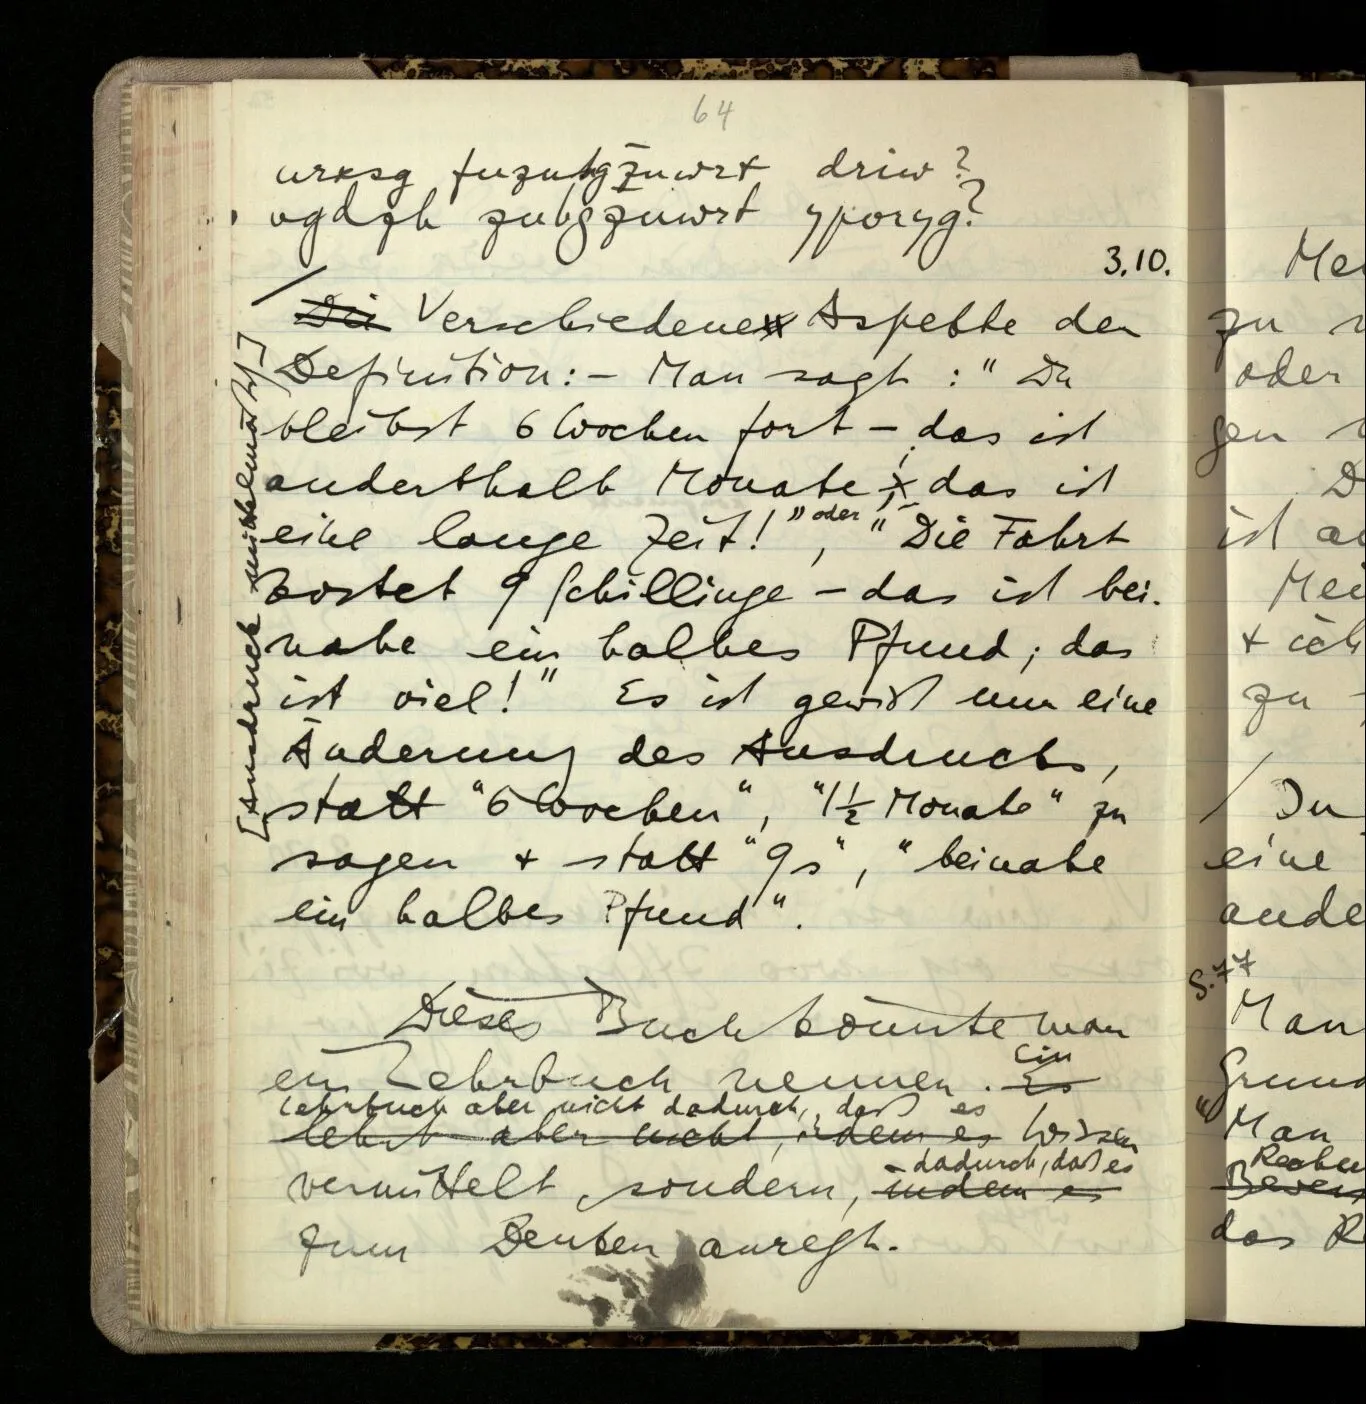 64
urxsg fuzubgzuwrt driw?
vgdzh zubgzuwrt yporyg?
3.10.
/ Die Verschiedene Aspekte der
Definition: – Man sagt: "Du
bleibst 6 Wochen fort – das ist
anderthalb Monate; – das ist
eine lange Zeit!", oder "Die Fahrt
kostet 9 Schillinge – das ist bei-
nahe ein halbes Pfund; das
ist viel!" Es ist gewiß nur eine
Änderung des Ausdrucks,
statt "6 Wochen", "1½ Monate" zu
sagen + statt "9s", "beinahe
ein halbes Pfund".
[Ausdruck mittelmäßig]
Dieses Buch könnte man
ein Lehrbuch nennen. Es Ein
Lehrbuch aber nicht dadurch, daß es
lehrt aber nicht, indem es Wissen
dadurch, daß es
vermittelt, sondern, indem es
zum Denken anregt.
Mei
zu
oder
gen
D
ist au
Mei
+ ich
zu
/ In
eine
ande
S.77
Man
Grund
"Man
Rechen
Bewei
das Re